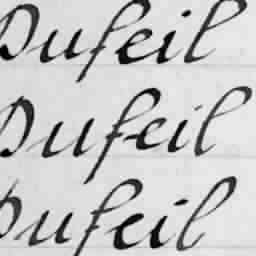 Dufeil
Dufeil
Dufeil